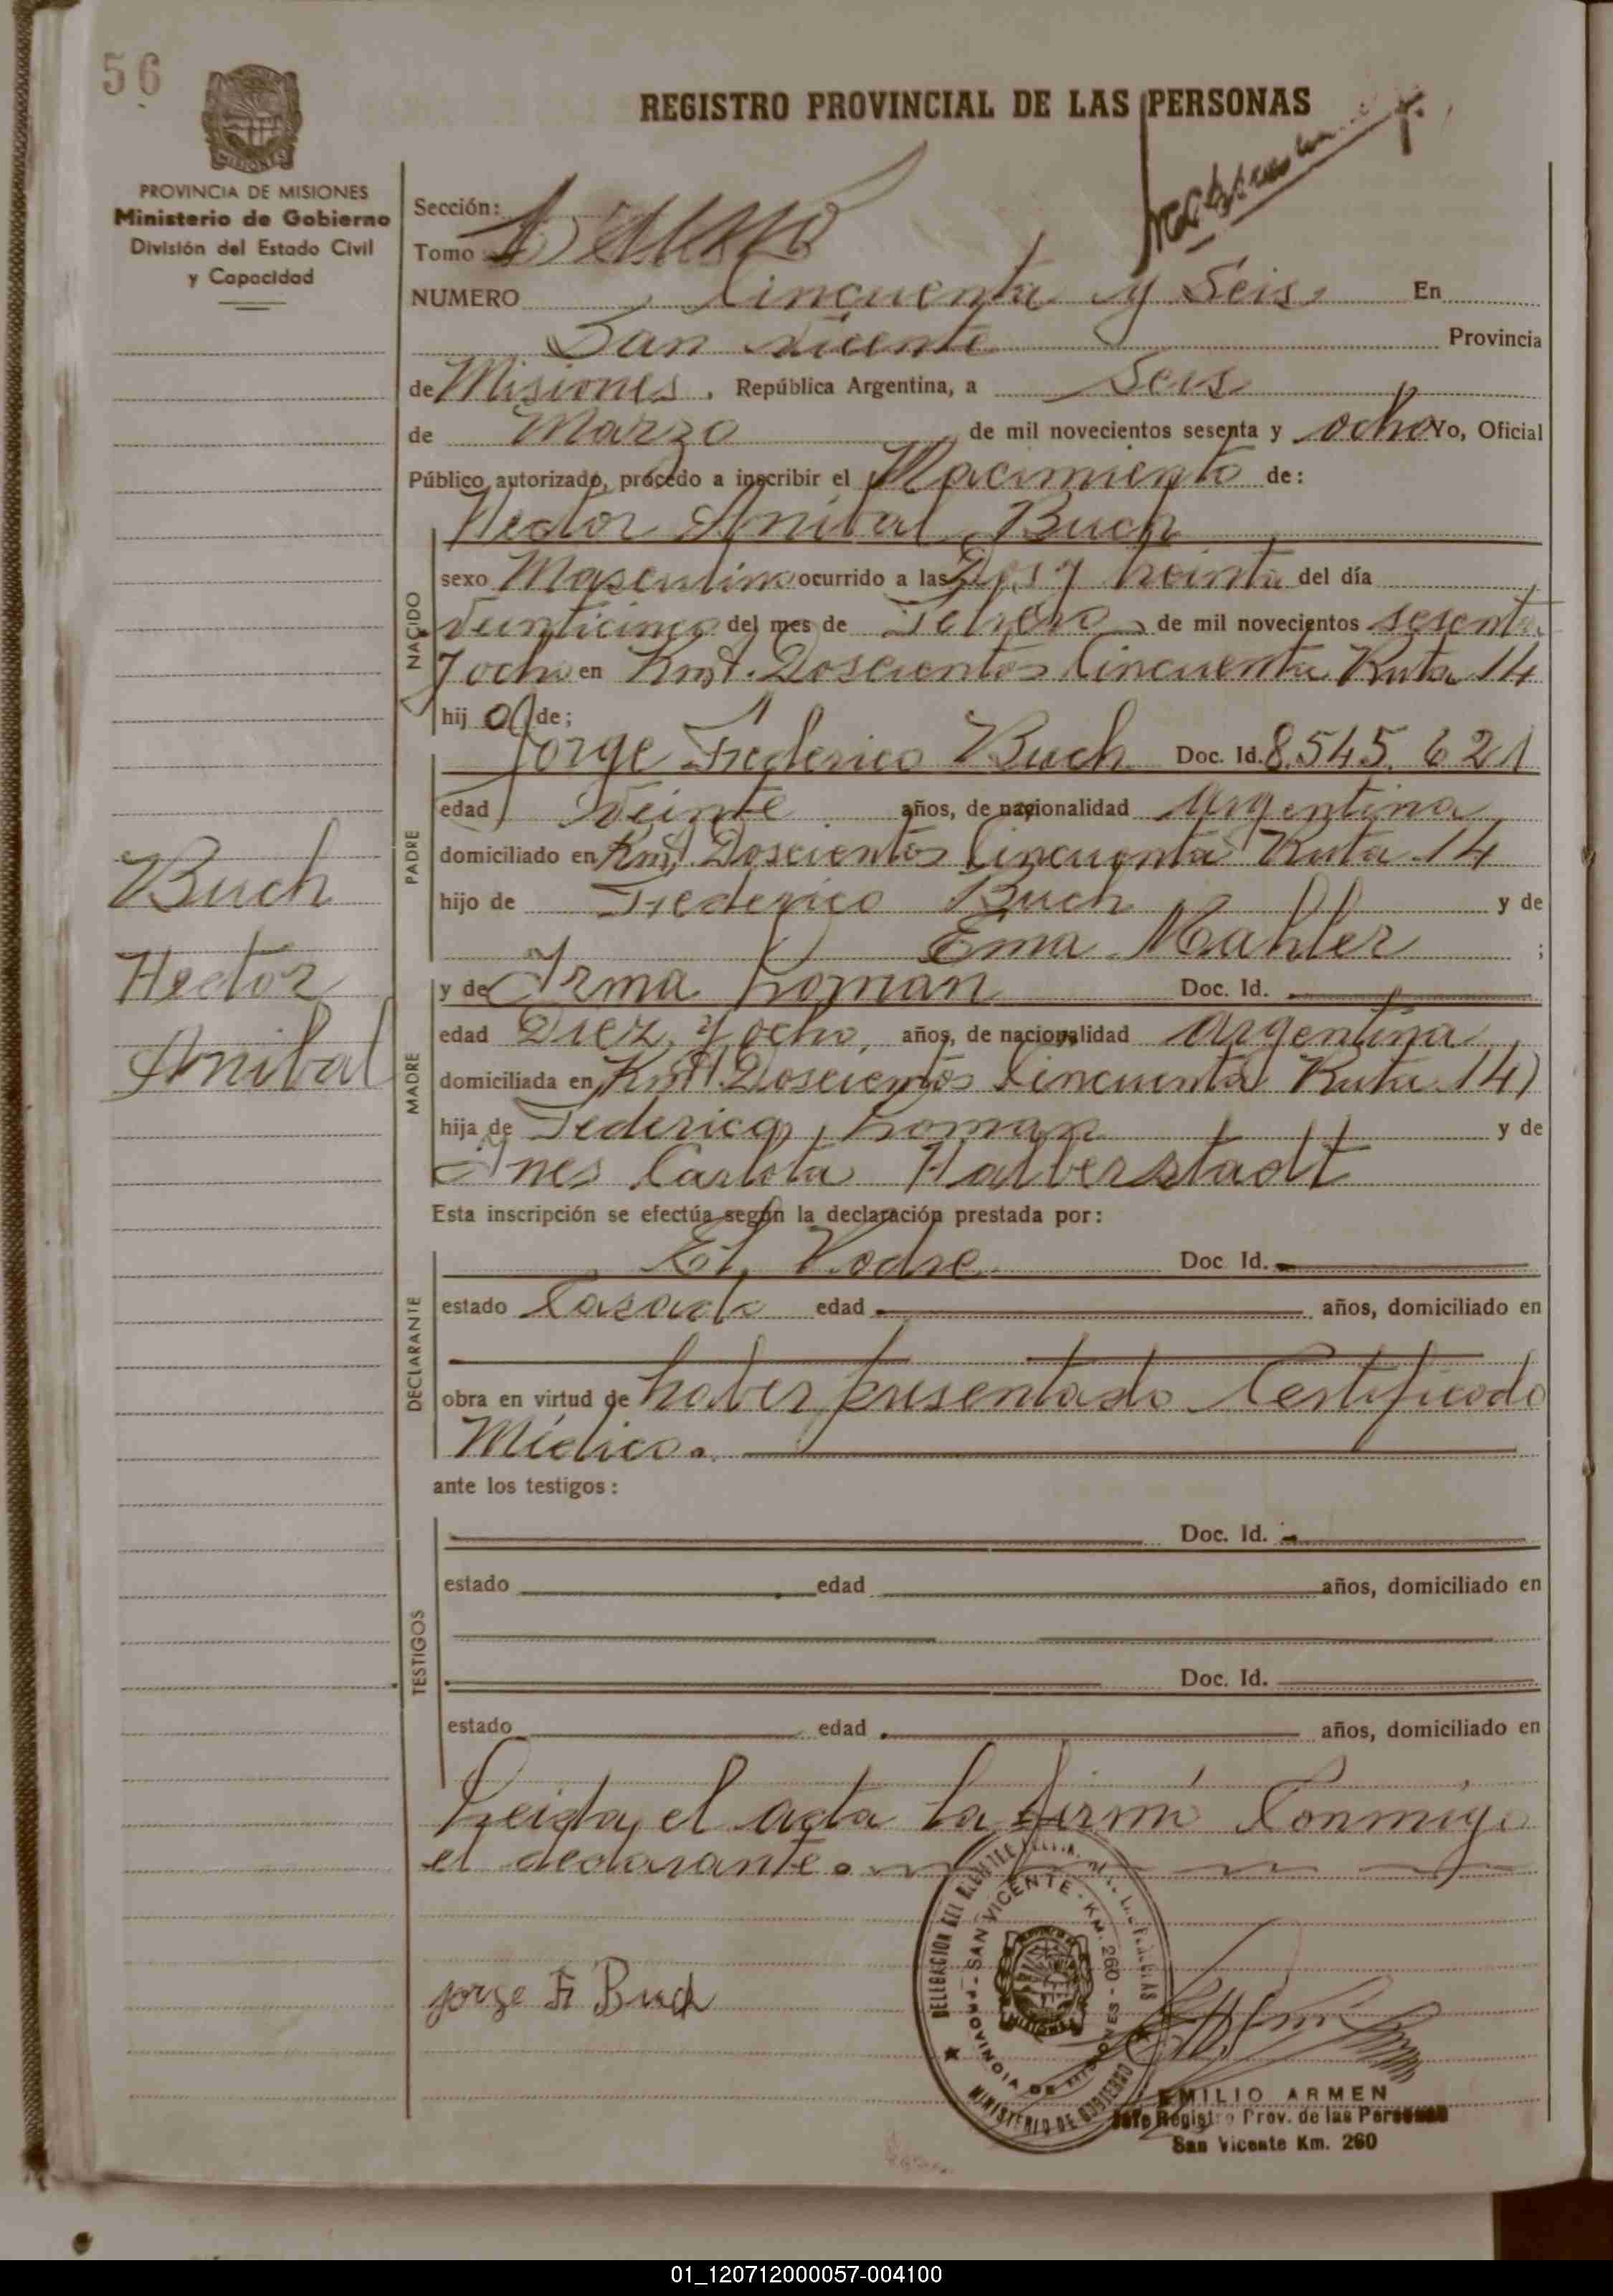 56
REGISTRO PROVINCIAL DE LAS PERSONAS
PROVINCIA DE MISIONES
Ministerio de Gobierno
División del Estado Civil
y Capacidad
Sección:
Tomo
NUMERO Cincuenta y Seis En
San Vicente Provincia
de Misiones, República Argentina, a Seis
de Marzo de mil novecientos sesenta y ocho Yo, Oficial
Público autorizado, procedo a inscribir el Nacimiento de:
Hector Anibal Buch
NACIDO
sexo Masculino ocurrido a las Dos y treinta del día
Veinticinco del mes de Febrero de mil novecientos sesenta
y ocho en Kmt. Doscientos Cincuenta Ruta 14
hijo de;
Jorge Federico Buch Doc. Id. 8.545.621
PADRE
edad Veinte años, de nacionalidad Argentina
domiciliado en Kmt Doscientos Cincuenta Ruta 14
hijo de Federico Buch y de
Ema Mahler ;
y de Irma Roman Doc. Id.
MADRE
edad Diez y ocho, años, de nacionalidad Argentina
domiciliada en Kmt. Doscientos Cincuenta Ruta 14
hija de Federico Roman y de
Ines Carlota Halberstadt
Buch
Hector
Anibal
Esta inscripción se efectúa según la declaración prestada por:
El Padre Doc. Id.
DECLARANTE
estado Casado edad años, domiciliado en
obra en virtud de haber presentado Certificado
Médico.
ante los testigos:
Doc. Id.
TESTIGOS
estado edad años, domiciliado en
Doc. Id.
estado edad años, domiciliado en
Leida el acta la firmó Conmigo
el declarante.
Jorge F. Buch
SAN VICENTE - KM. 260 - PROVINCIA DE MISIONES
MINISTERIO DE GOBIERNO
EMILIO ARMEN
Jefe Registro Prov. de las Personas
San Vicente Km. 260
01_120712000057-004100